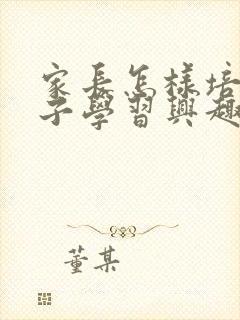 家長怎樣培
子學習興趣
董某